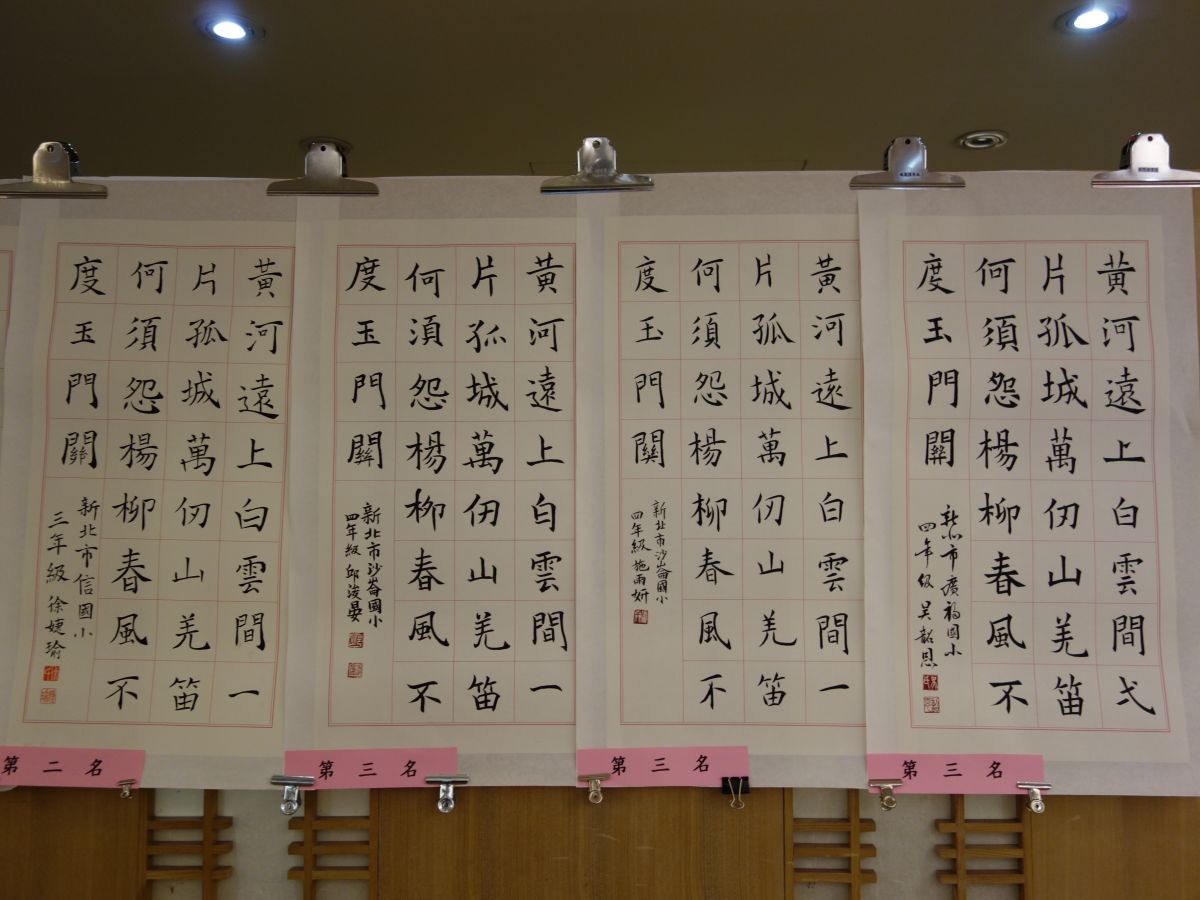 黃河遠上白雲間一
片孤城萬仞山羌笛
何須怨楊柳春風不
度玉門關
新北市信國小
三年級 徐婕瑜
第二名
黃河遠上白雲間一
片孤城萬仞山羌笛
何須怨楊柳春風不
度玉門關
新北市沙崙國小
四年級 邱浚晏
第三名
黃河遠上白雲間一
片孤城萬仞山羌笛
何須怨楊柳春風不
度玉門關
新北市沙崙國小
四年級 施雨妍
第三名
黃河遠上白雲間弌
片孤城萬仞山羌笛
何須怨楊柳春風不
度玉門關
新北市廣福國小
四年級 吴韶恩
第三名